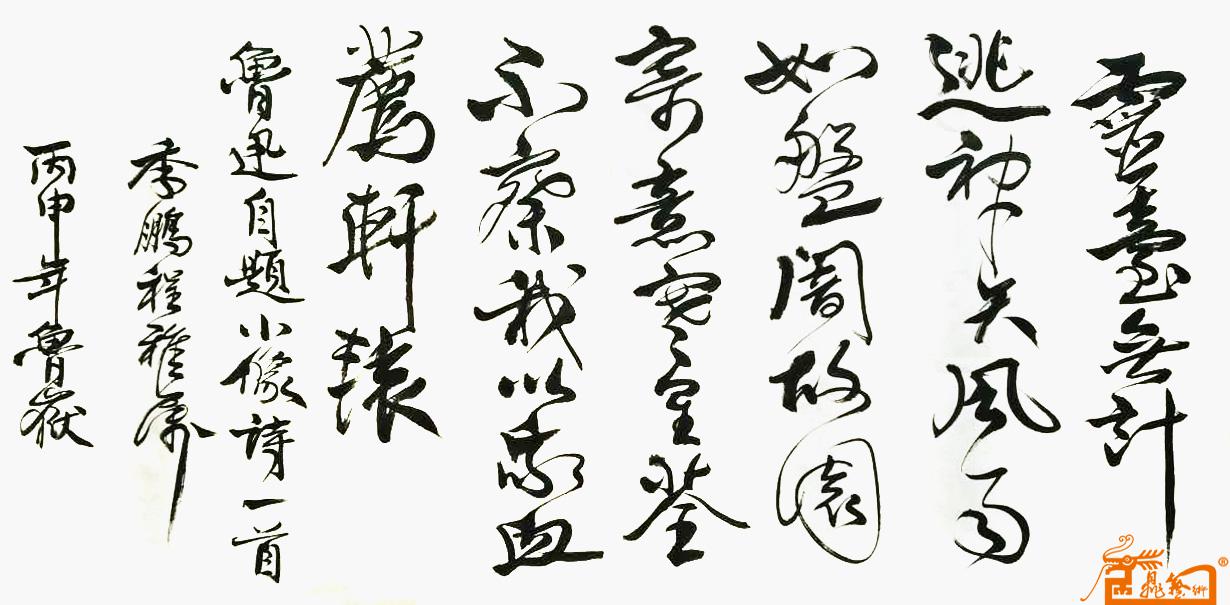 靈臺無計
逃神矢風雨
如盤闇故園
寄意寒星荃
不察我以我血
薦軒轅
魯迅自題小像詩一首
季鵬程雅屬
丙申年魯嶽